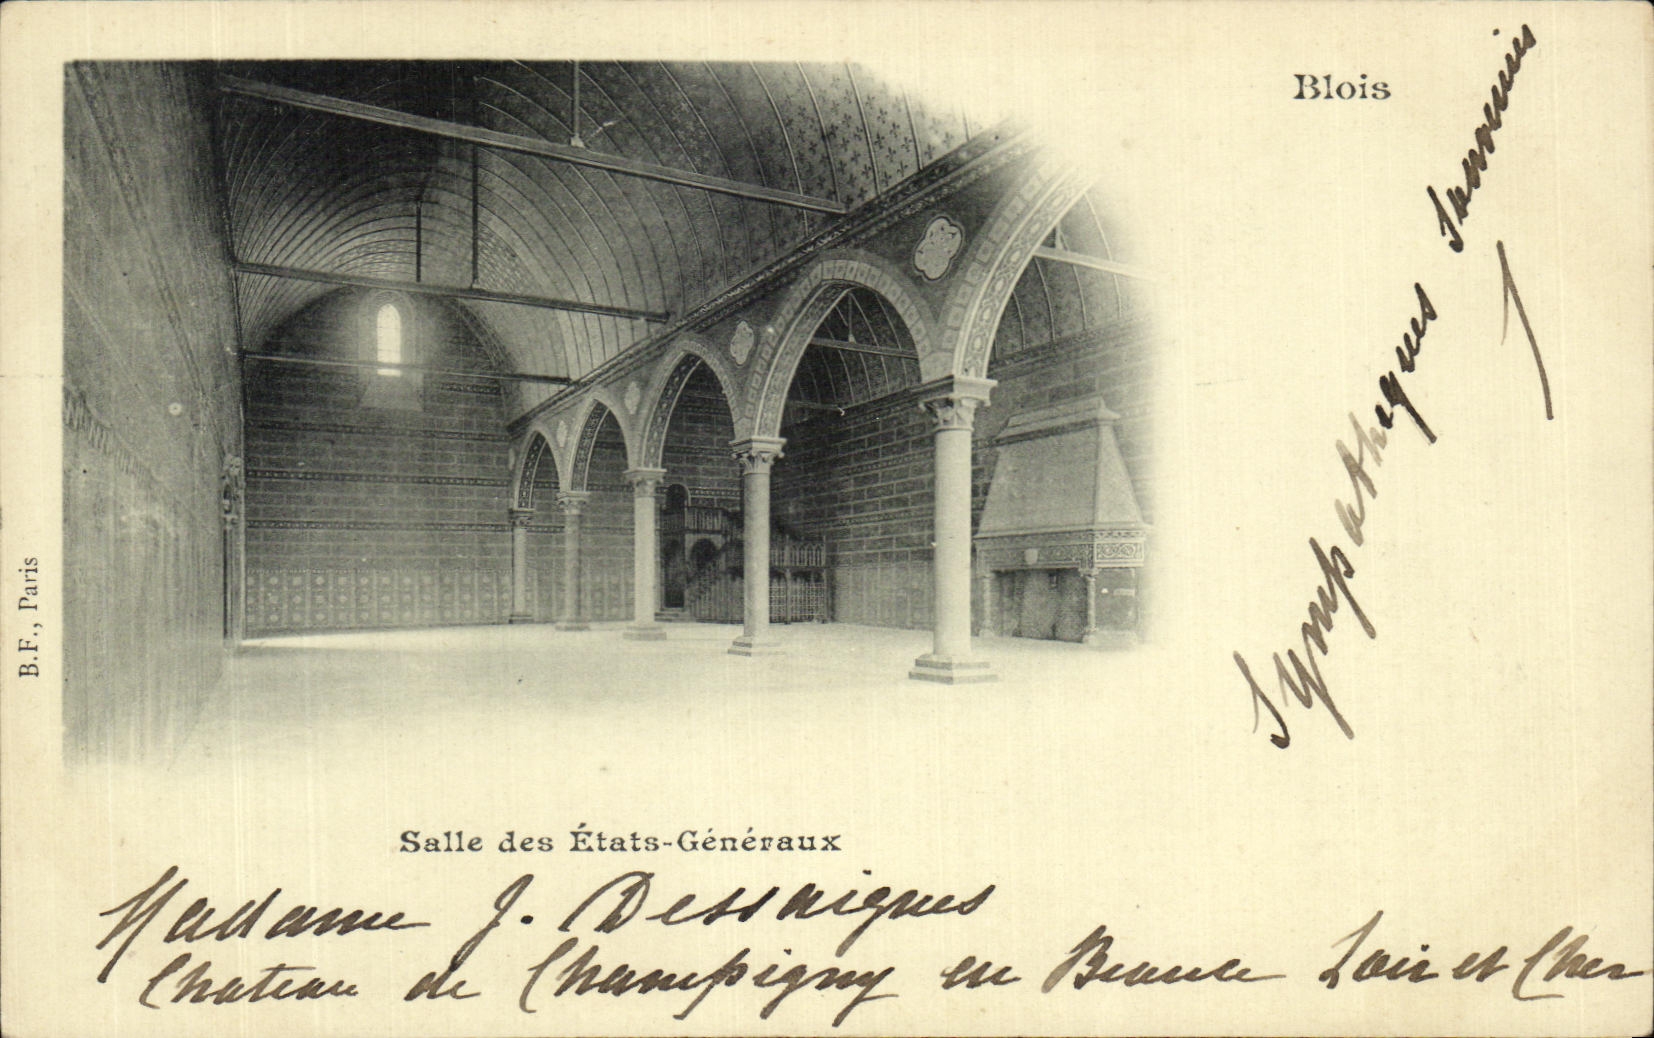 Blois
Sympathiques Souvenirs
B.F., Paris
Salle des États-Généraux
Madame J. Dessaignes
Chateau de Champigny en Beauce Loir et Cher